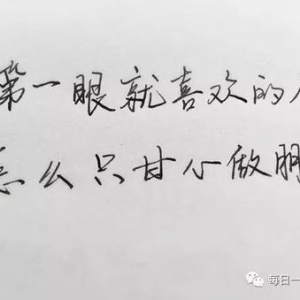 第一眼就喜欢的
怎么只甘心做朋
每日一